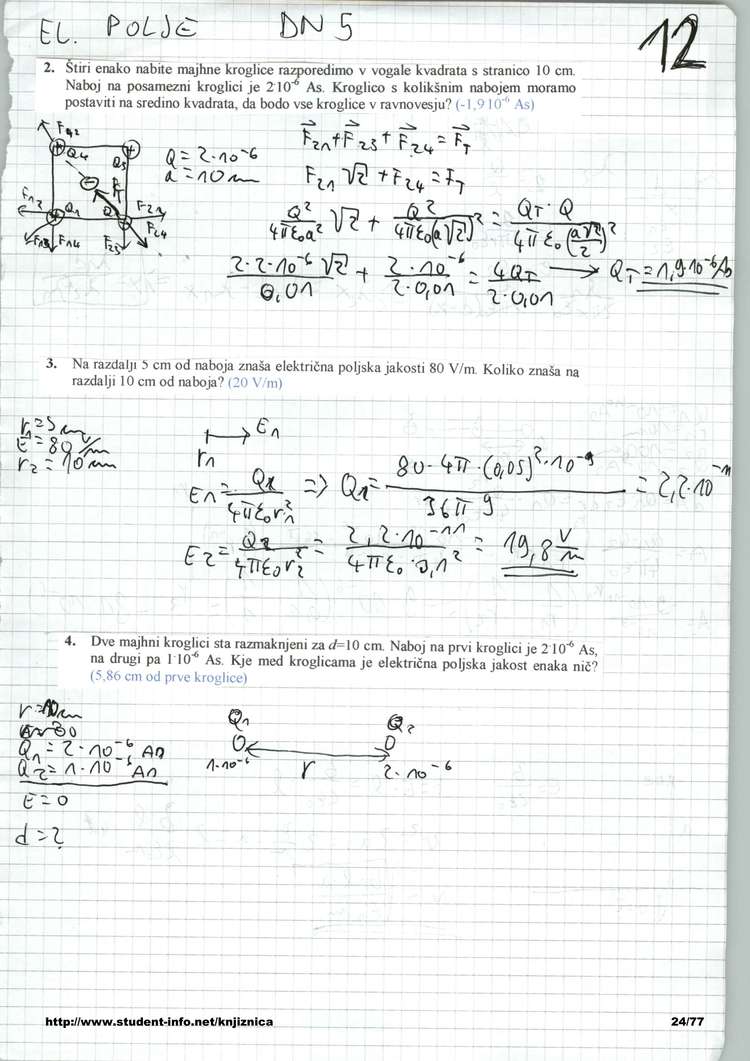 EL. POLJE DN 5
12
2. Štiri enako nabite majhne kroglice razporedimo v vogale kvadrata s stranico 10 cm.
Naboj na posamezni kroglici je 2·10⁻⁶ As. Kroglico s kolikšnim nabojem moramo
postaviti na sredino kvadrata, da bodo vse kroglice v ravnovesju? (-1,9·10⁻⁶ As)
Q = 2·10⁻⁶
a = 10 cm
F₂₁ + F₂₃ + F₂₄ = F_T
F₂₁ √2 + F₂₄ = F_T
Q²/4πε₀a² √2 + Q²/4πε₀(a√2)² = Q_T·Q/4πε₀(a√2/2)²
2·2·10⁻⁶ √2/0,01 + 2·10⁻⁶/2·0,01 = 4Q_T/2·0,01 → Q_T = 1,9·10⁻⁶ As
3. Na razdalji 5 cm od naboja znaša električna poljska jakosti 80 V/m. Koliko znaša na
razdalji 10 cm od naboja? (20 V/m)
r₁ = 5 cm
E = 80 V/m
r₂ = 10 cm
E₁
r₁
E₁ = Q₁/4πε₀r₁² => Q₁ = 80·4π·(0,05)²·10⁻⁹/36π = 2,2·10⁻¹¹
E₂ = Q₂/4πε₀r₂² = 2,2·10⁻¹¹/4πε₀·0,1² = 19,8 V/m
4. Dve majhni kroglici sta razmaknjeni za d=10 cm. Naboj na prvi kroglici je 2·10⁻⁶ As,
na drugi pa 1·10⁻⁶ As. Kje med kroglicama je električna poljska jakost enaka nič?
(5,86 cm od prve kroglice)
r = 10 cm
Q₁ = 2·10⁻⁶ As
Q₂ = 1·10⁻⁶ As
E = 0
d = ?
Q₁ Q₂
1·10⁻⁶ r 2·10⁻⁶
http://www.student-info.net/knjiznica 24/77